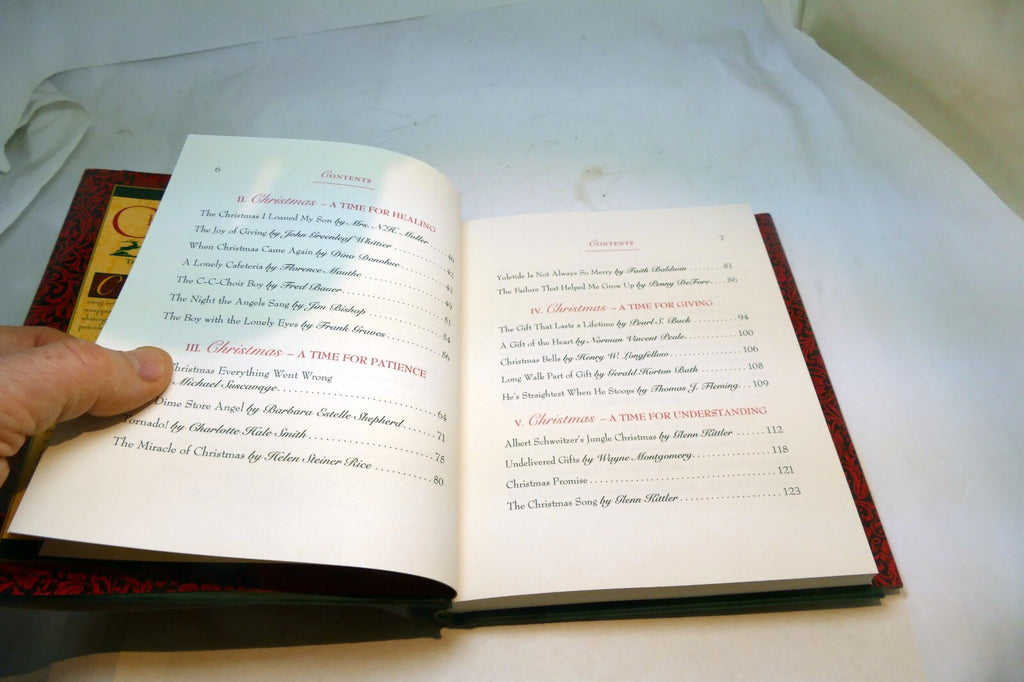 6
Contents
II. Christmas – A TIME FOR HEALING
The Christmas I Loaned My Son by Mrs. N.H. Muller
The Joy of Giving by John Greenleaf Whittier ... 40
When Christmas Came Again by Dina Donohue ... 42
A Lonely Cafeteria by Florence Mauthe
The C-C-Choir Boy by Fred Bauer ... 49
The Night the Angels Sang by Jim Bishop ... 51
The Boy with the Lonely Eyes by Frank Graves ... 54
56
III. Christmas – A TIME FOR PATIENCE
Christmas Everything Went Wrong
Michael Suscavage ... 64
Dime Store Angel by Barbara Estelle Shepherd ... 71
Tornado! by Charlotte Hale Smith ... 75
The Miracle of Christmas by Helen Steiner Rice ... 80
Contents
7
Yuletide Is Not Always So Merry by Faith Baldwin ... 81
The Failure That Helped Me Grow Up by Penny DeFore ... 86
IV. Christmas – A TIME FOR GIVING
The Gift That Lasts a Lifetime by Pearl S. Buck ... 94
A Gift of the Heart by Norman Vincent Peale ... 100
Christmas Bells by Henry W. Longfellow ... 106
Long Walk Part of Gift by Gerald Horton Bath ... 108
He's Straightest When He Stoops by Thomas J. Fleming ... 109
V. Christmas – A TIME FOR UNDERSTANDING
Albert Schweitzer's Jungle Christmas by Glenn Kittler ... 112
Undelivered Gifts by Wayne Montgomery ... 118
Christmas Promise ... 121
The Christmas Song by Glenn Kittler ... 123